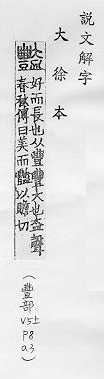 說文解字
大徐本
豔 好而長也从豐豐大也盍聲
春秋傳曰美而豔以贍切
(豐部
V5上
P8
a3)